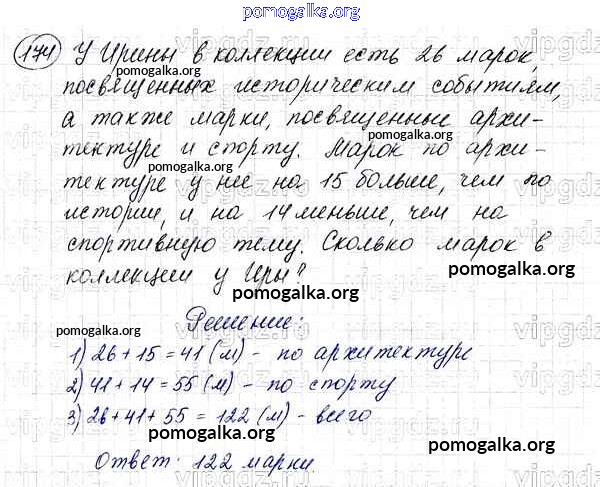 pomogalka.org
174 У Ирины в коллекции есть 26 марок,
pomogalka.org
посвященных историческим событиям,
а также марки, посвященные архи-
pomogalka.org
тектуре и спорту. Марок по архи-
pomogalka.org
тектуре у нее на 15 больше, чем по
истории, и на 14 меньше, чем на
спортивную тему. Сколько марок в
коллекции у Иры?
pomogalka.org
pomogalka.org
Решение:
pomogalka.org
1) 26 + 15 = 41 (м) - по архитектуре
2) 41 + 14 = 55 (м) - по спорту
pomogalka.org
3) 26 + 41 + 55 = 122 (м) - всего
pomogalka.org
pomogalka.org
Ответ: 122 марки.